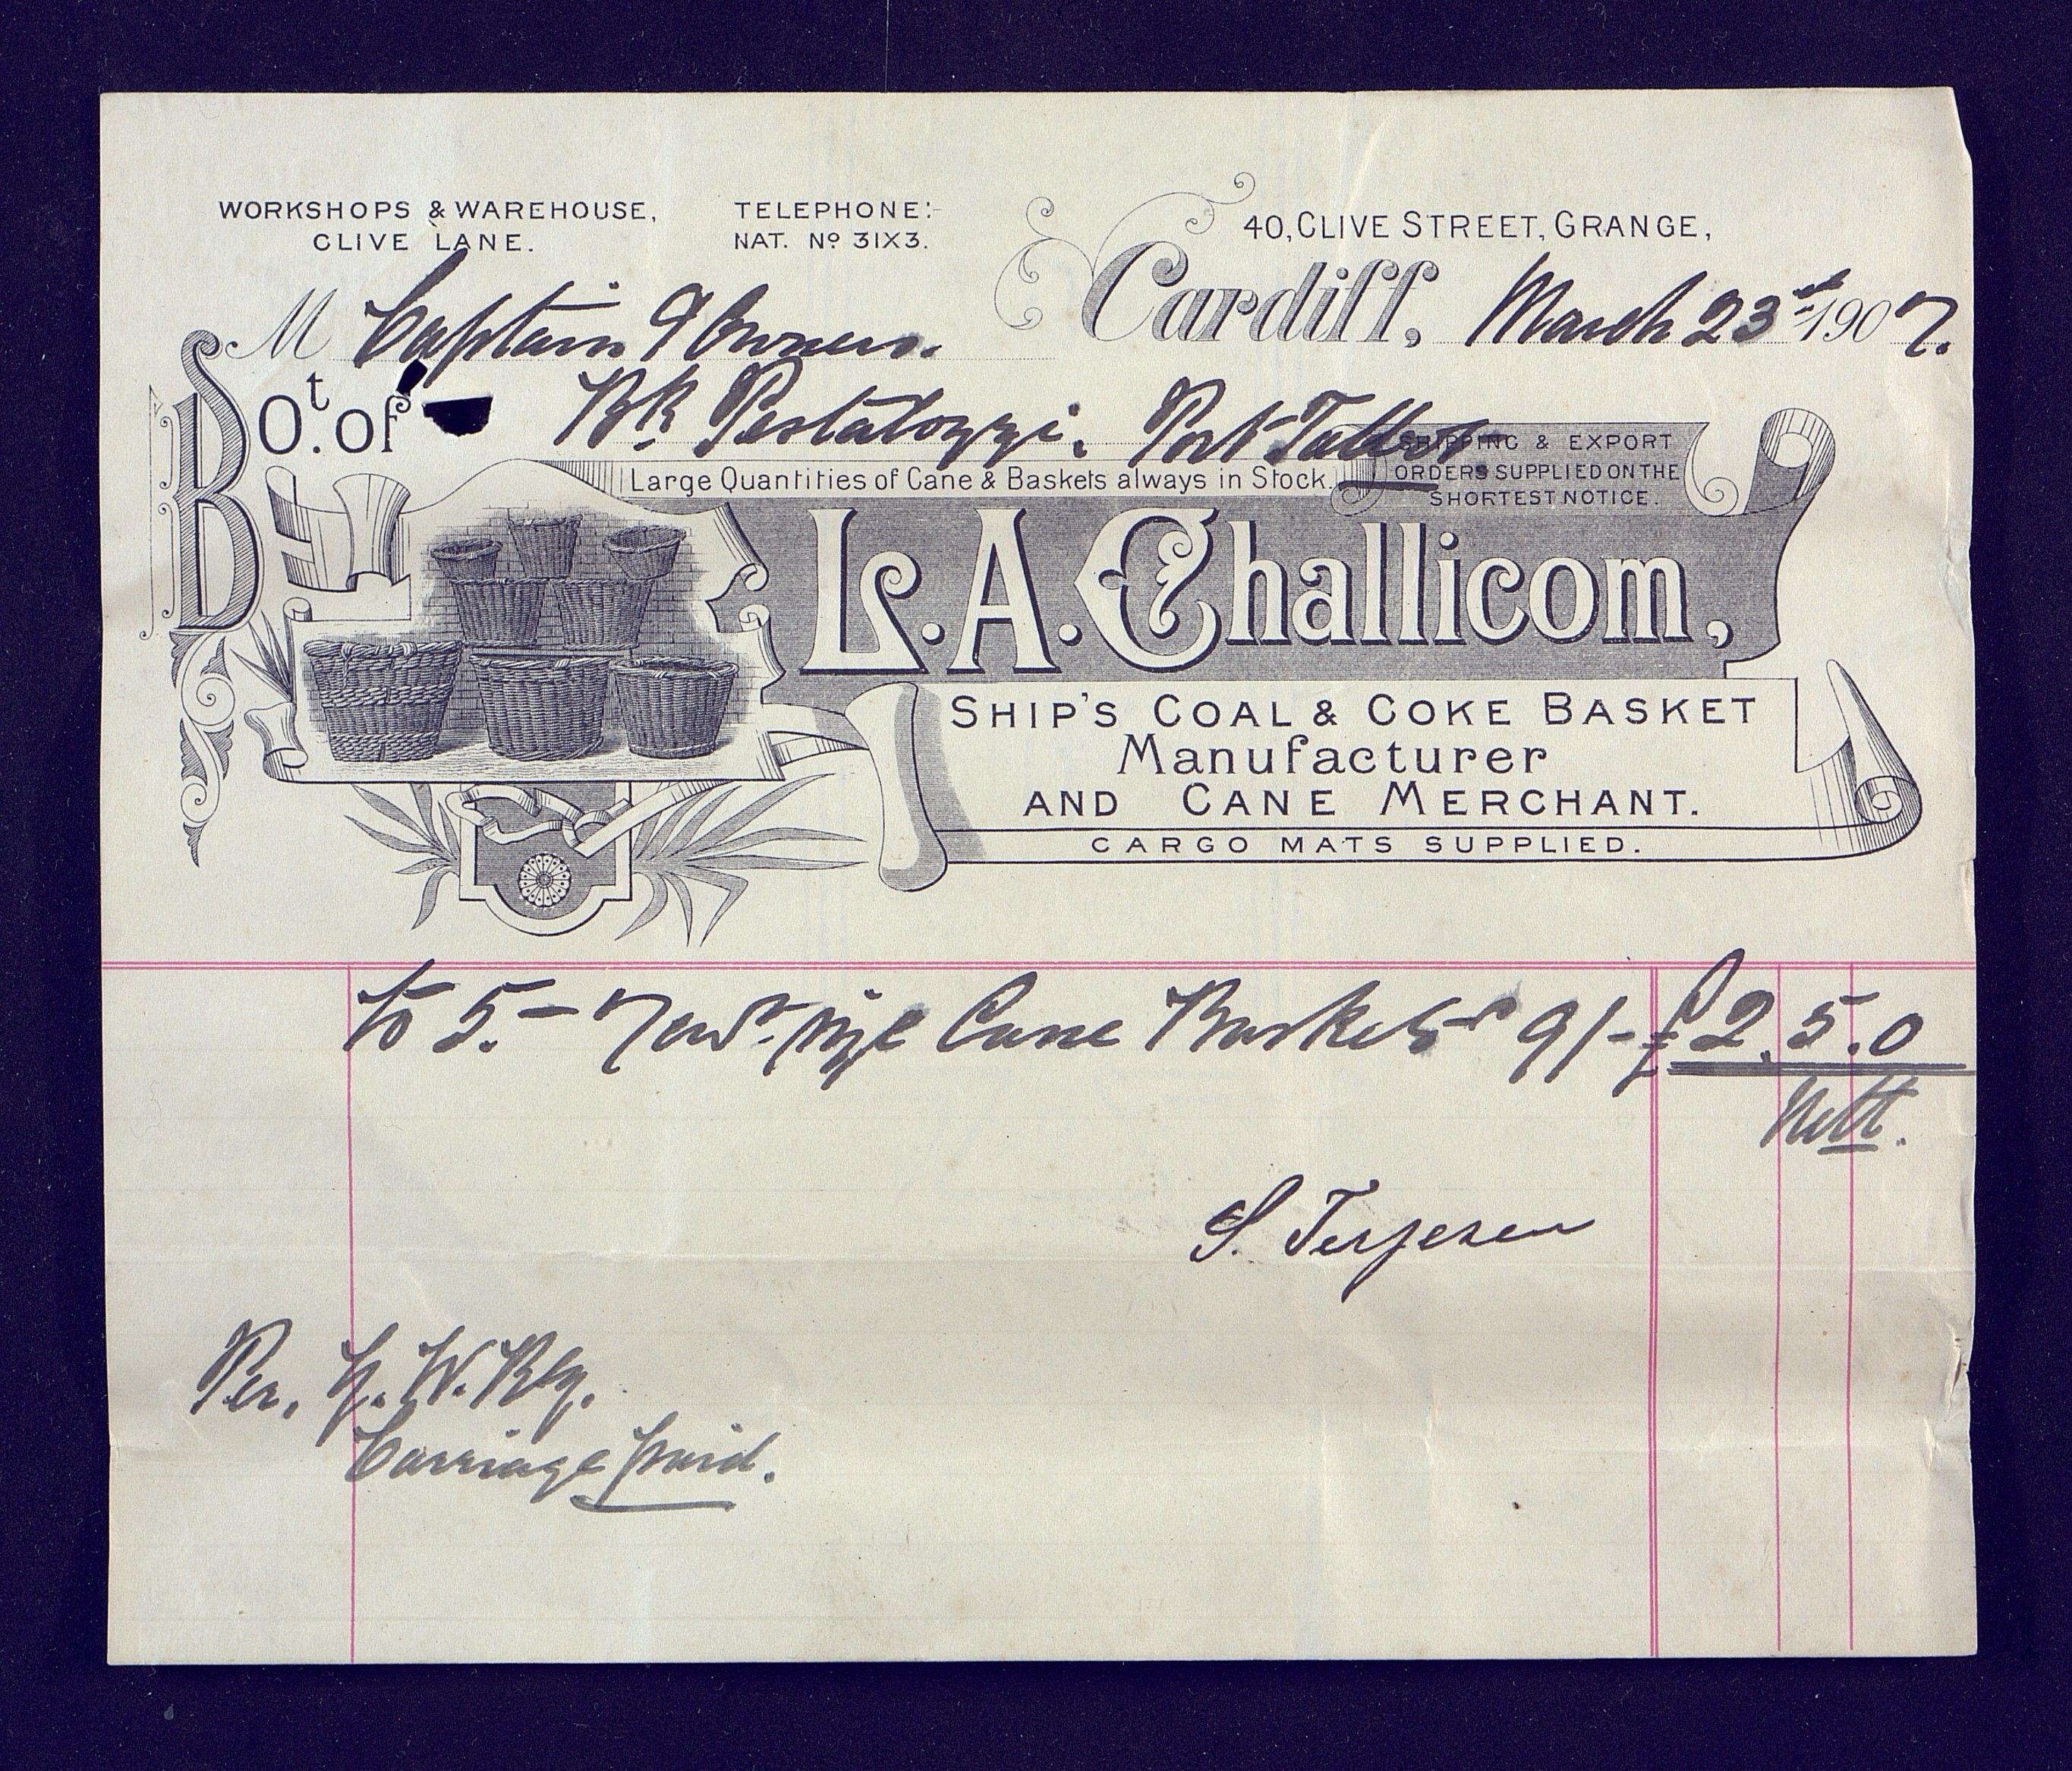 WORKSHOPS & WAREHOUSE,
CLIVE LANE.
TELEPHONE:-
NAT. Nº 31X3.
40, CLIVE STREET, GRANGE,
Cardiff, March 23rd 1907.
M Captain & Owners.
Bot. of Bk Pestalozzi. Port Talbot
Large Quantities of Cane & Baskets always in Stock.
SHIPPING & EXPORT
ORDERS SUPPLIED ON THE
SHORTEST NOTICE.
L. A. Challicom,
SHIP'S COAL & COKE BASKET
Manufacturer
AND CANE MERCHANT.
CARGO MATS SUPPLIED.
To 5 - New size Cane Baskets 9/- £2.5.0
Nett.
S. Terjesen
Per. G. W. Rly.
Carriage paid.